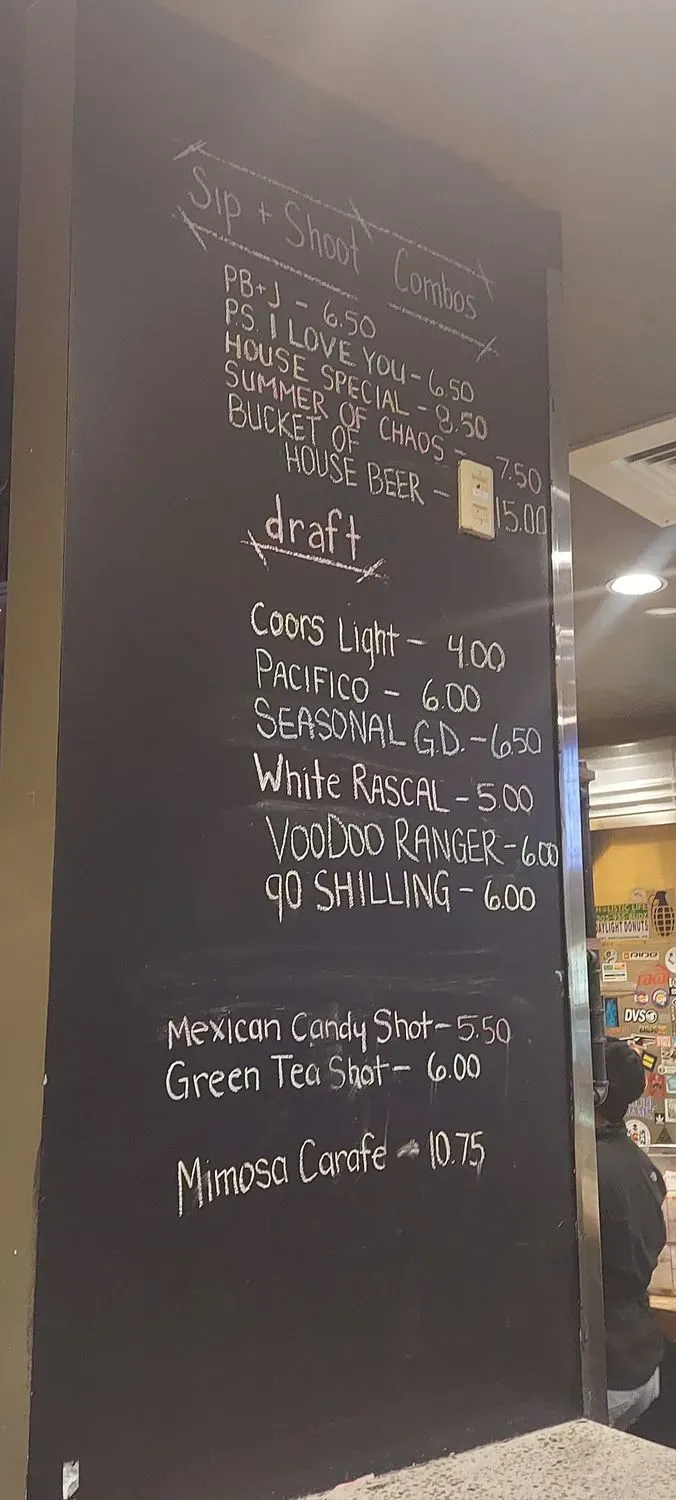 Sip + Shoot Combos
PB+J - 6.50
P.S. I LOVE YOU - 6.50
HOUSE SPECIAL - 8.50
SUMMER OF CHAOS - 7.50
BUCKET OF
HOUSE BEER - 15.00
draft
Coors Light - 4.00
PACIFICO - 6.00
SEASONAL G.D. - 6.50
White RASCAL - 5.00
VOODOO RANGER - 6.00
90 SHILLING - 6.00
Mexican Candy Shot - 5.50
Green Tea Shot - 6.00
Mimosa Carafe - 10.75
DAYLIGHT DONUTS
RIDE
DVS